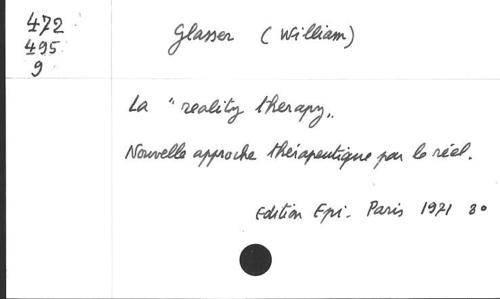 472
495
9
Glasser (William)
La "reality therapy"
Nouvelle approche thérapeutique par le réel.
Edition Epi. Paris 1971 8°